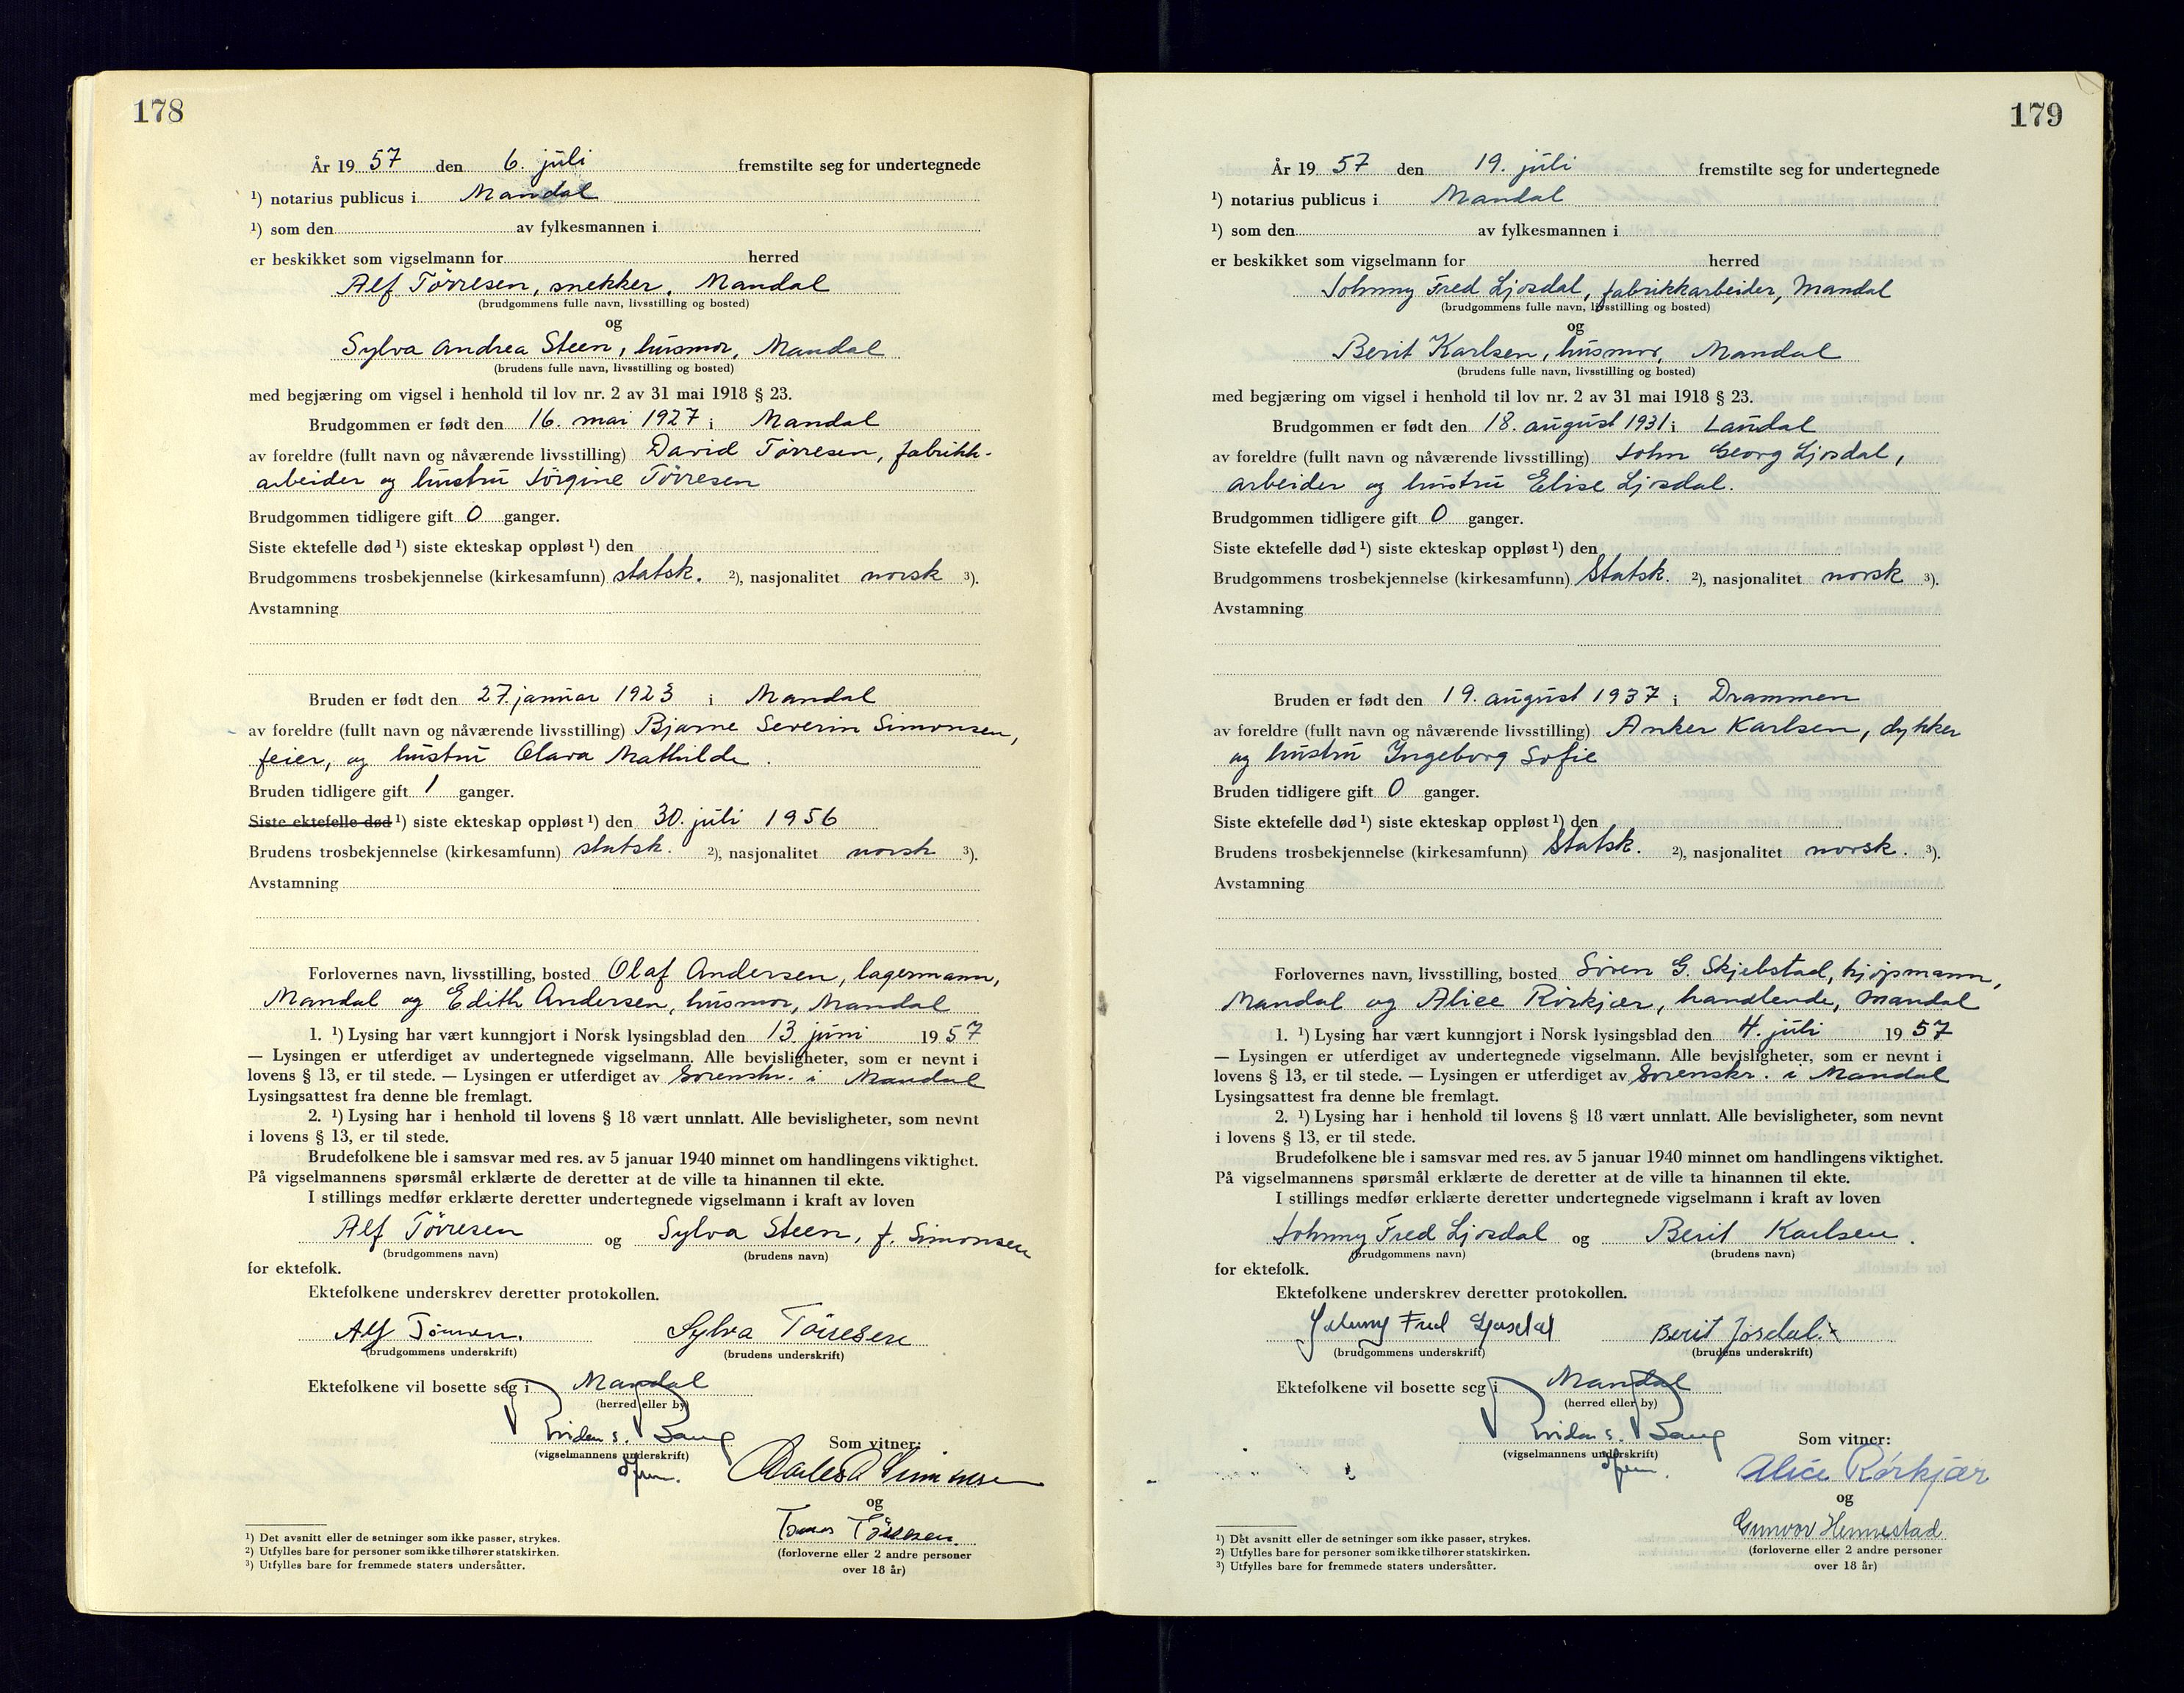 178
År 19 57 den 6. juli fremstilte seg for undertegnede
¹) notarius publicus i Mandal
¹) som den av fylkesmannen i
er beskikket som vigselmann for herred
Alf Tørresen, snekker, Mandal
(brudgommens fulle navn, livsstilling og bosted)
og
Sylva Andrea Steen, husmor, Mandal
(brudens fulle navn, livsstilling og bosted)
med begjæring om vigsel i henhold til lov nr. 2 av 31 mai 1918 § 23.
Brudgommen er født den 16. mai 1927 i Mandal
av foreldre (fullt navn og nåværende livsstilling) David Tørresen, fabrikk-
arbeider og hustru Jørgine Tørresen
Brudgommen tidligere gift 0 ganger.
Siste ektefelle død ¹) siste ekteskap oppløst ¹) den
Brudgommens trosbekjennelse (kirkesamfunn) statsk. ²), nasjonalitet norsk ³).
Avstamning
Bruden er født den 27. januar 1923 i Mandal
av foreldre (fullt navn og nåværende livsstilling) Bjarne Severin Simonsen,
feier, og hustru Olava Mathilde.
Bruden tidligere gift 1 ganger.
Siste ektefelle død ¹) siste ekteskap oppløst ¹) den 30. juli 1956
Brudens trosbekjennelse (kirkesamfunn) statsk. ²), nasjonalitet norsk ³).
Avstamning
Forlovernes navn, livsstilling, bosted Olaf Andersen, lagermann,
Mandal og Edith Andersen, husmor, Mandal
1. ¹) Lysing har vært kunngjort i Norsk lysingsblad den 13. juni 19 57
— Lysingen er utferdiget av undertegnede vigselmann. Alle bevisligheter, som er nevnt i
lovens § 13, er til stede. — Lysingen er utferdiget av Sorenskr. i Mandal
Lysingsattest fra denne ble fremlagt.
2. ¹) Lysing har i henhold til lovens § 18 vært unnlatt. Alle bevisligheter, som nevnt
i lovens § 13, er til stede.
Brudefolkene ble i samsvar med res. av 5 januar 1940 minnet om handlingens viktighet.
På vigselmannens spørsmål erklærte de deretter at de ville ta hinannen til ekte.
I stillings medfør erklærte deretter undertegnede vigselmann i kraft av loven
Alf Tørresen og Sylva Steen, f. Simonsen
(brudgommens navn) (brudens navn)
for ektefolk.
Ektefolkene underskrev deretter protokollen.
Alf Tørresen. Sylva Tørresen
(brudgommens underskrift) (brudens underskrift)
Ektefolkene vil bosette seg i Mandal
(herred eller by)
(vigselmannens underskrift)
Som vitner:
og
Tørresen
(forloverne eller 2 andre personer
over 18 år)
¹) Det avsnitt eller de setninger som ikke passer, strykes.
²) Utfylles bare for personer som ikke tilhører statskirken.
³) Utfylles bare for fremmede staters undersåtter.
179
År 19 57 den 19. juli fremstilte seg for undertegnede
¹) notarius publicus i Mandal
¹) som den av fylkesmannen i
er beskikket som vigselmann for herred
Johnny Fred Ljosdal, fabrikkarbeider, Mandal
(brudgommens fulle navn, livsstilling og bosted)
og
Berit Karlsen, husmor, Mandal
(brudens fulle navn, livsstilling og bosted)
med begjæring om vigsel i henhold til lov nr. 2 av 31 mai 1918 § 23.
Brudgommen er født den 18. august 1931 i Laudal
av foreldre (fullt navn og nåværende livsstilling) John Georg Ljosdal,
arbeider og hustru Elise Ljosdal.
Brudgommen tidligere gift 0 ganger.
Siste ektefelle død ¹) siste ekteskap oppløst ¹) den
Brudgommens trosbekjennelse (kirkesamfunn) Statsk. ²), nasjonalitet norsk ³).
Avstamning
Bruden er født den 19. august 1937 i Drammen
av foreldre (fullt navn og nåværende livsstilling) Anker Karlsen, dykker
og hustru Ingeborg Sofie
Bruden tidligere gift 0 ganger.
Siste ektefelle død ¹) siste ekteskap oppløst ¹) den
Brudens trosbekjennelse (kirkesamfunn) Statsk. ²), nasjonalitet norsk. ³).
Avstamning
Forlovernes navn, livsstilling, bosted Søren G. Skjebstad, kjøpmann,
Mandal og Alice Rørkjær, handlende, Mandal
1. ¹) Lysing har vært kunngjort i Norsk lysingsblad den 4. juli 19 57
— Lysingen er utferdiget av undertegnede vigselmann. Alle bevisligheter, som er nevnt i
lovens § 13, er til stede. — Lysingen er utferdiget av Sorenskr. i Mandal
Lysingsattest fra denne ble fremlagt.
2. ¹) Lysing har i henhold til lovens § 18 vært unnlatt. Alle bevisligheter, som nevnt
i lovens § 13, er til stede.
Brudefolkene ble i samsvar med res. av 5 januar 1940 minnet om handlingens viktighet.
På vigselmannens spørsmål erklærte de deretter at de ville ta hinannen til ekte.
I stillings medfør erklærte deretter undertegnede vigselmann i kraft av loven
Johnny Fred Ljosdal og Berit Karlsen.
(brudgommens navn) (brudens navn)
for ektefolk.
Ektefolkene underskrev deretter protokollen.
Johnny Fred Ljosdal Berit Josdal.
(brudgommens underskrift) (brudens underskrift)
Ektefolkene vil bosette seg i Mandal
(herred eller by)
(vigselmannens underskrift)
Som vitner:
Alice Rørkjær
og
Gunvor Hennestad
(forloverne eller 2 andre personer
over 18 år)
¹) Det avsnitt eller de setninger som ikke passer, strykes.
²) Utfylles bare for personer som ikke tilhører statskirken.
³) Utfylles bare for fremmede staters undersåtter.